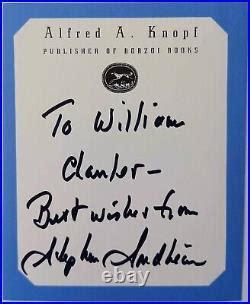 Alfred A. Knopf
PUBLISHER OF BORZOI BOOKS
To William
Clauter-
Best wishes from
Stephen Sondheim